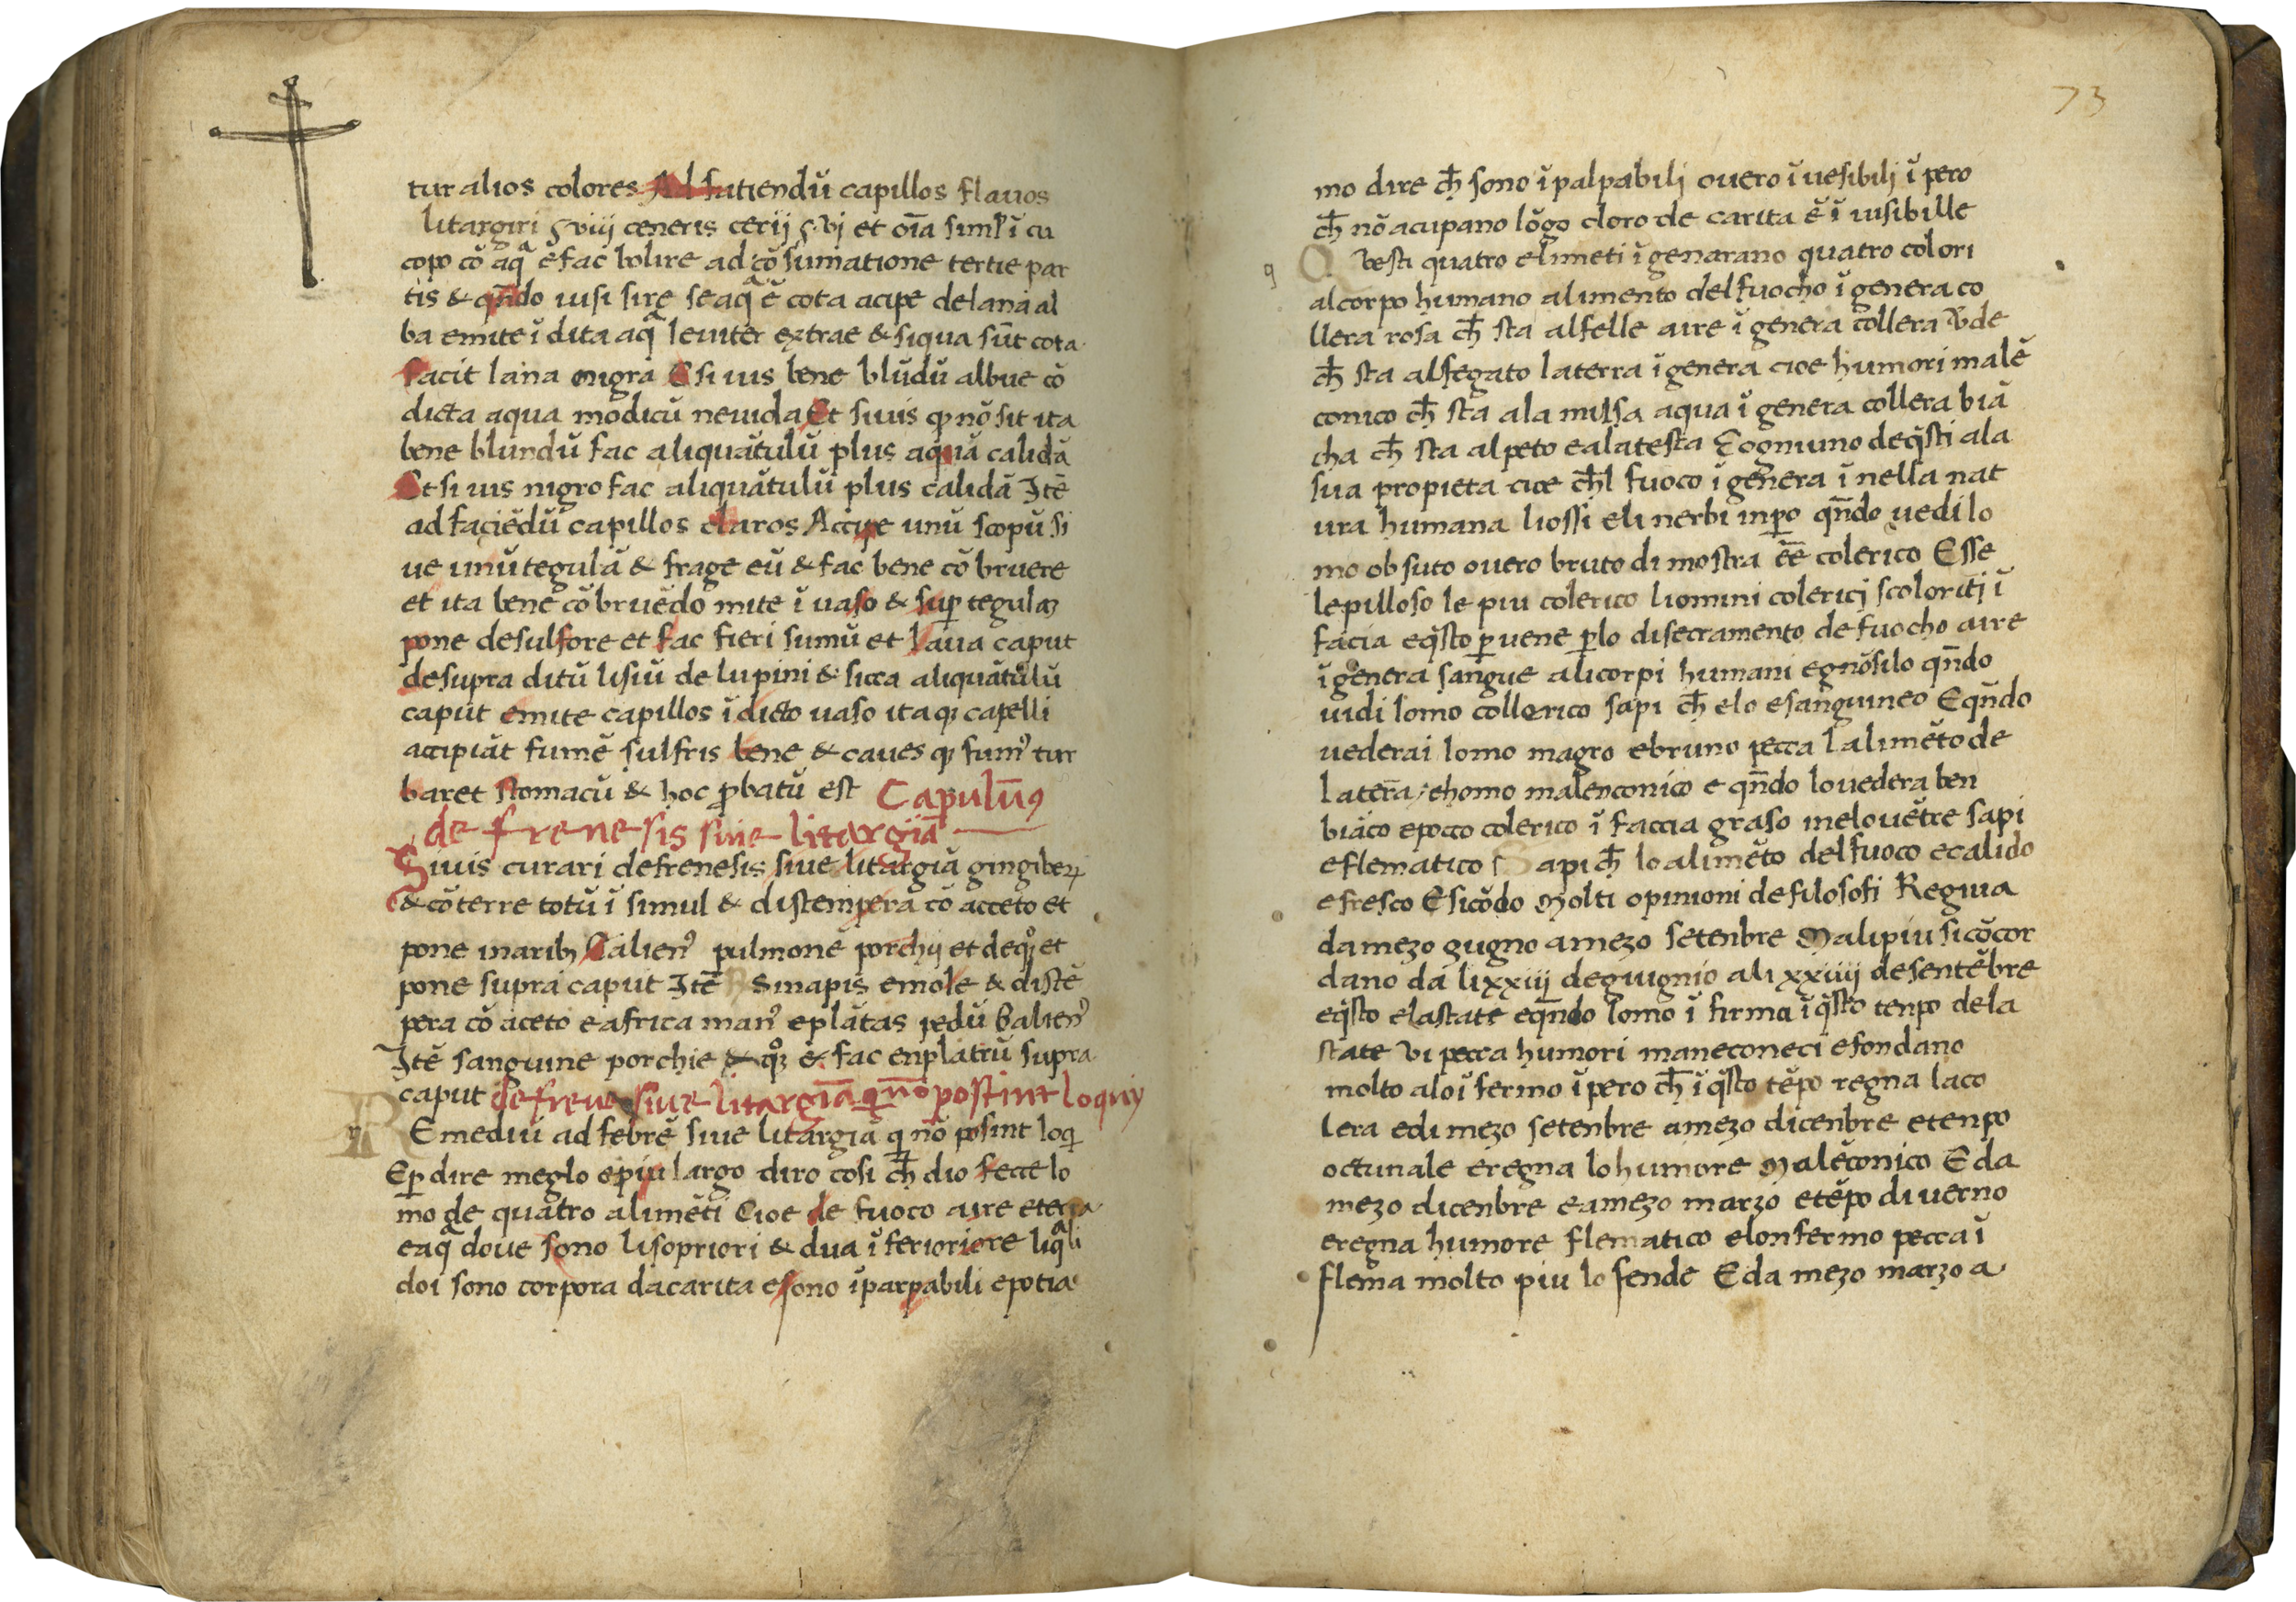 tur alios colores Ad fatiendū capillos flauos
litargiri ℥ viiij ceneris cerij ℥ vj et oīa siml' ī cu
copo cō aq̄ e fac bolire ad cōsumatione tertie par
tis & qn̄do uisi sire se aq̄ ē cota acipe de lana al
ba emite ī dita aq̄ leuiter extrae & si qua sūt cota
facit lana nigra E si uis bene blūdū albue cō
dicta aqua modicū neuida Et si uis q nō sit ita
bene blundū fac aliquātulū plus aquā calidā
Et si uis nigro fac aliquātulū plus calidā Itē
ad faciēdū capillos claros Accipe unū scopū si
ue unū tegulā & frage eū & fac bene cō bruere
et ita bene cō bruēdo mite ī uaso & sup tegulaʒ
pone de sulfore et fac fieri sumū et laua caput
desupra ditū lisiū de lupini & sicca aliquātulū
caput emite capillos ī dicto uaso ita qʒ capelli
accipiāt fumē sulfris bene & caues qʒ fum' tur
baret stomacū & hoc ꝓbatū est Capulūꝰ
de frenesis siue litargiā
Si uis curari de frenesis siue litargiā gingiberꝝ
& cōterre totū ī simul & distempera cō acceto et
pone narib; Galien' pulmonē porchij et deqͦʒ et
pone supra caput Itē R sinapis emole & distē
pera cō aceto e africa man' e plātas pedū Galien'
Itē sanguine porchie & qͦʒ & fac enplatrū supra
caput de frene siue litargiā q nō postint loquij
REmediū ad febrē siue litargiā q nō posint loq
Eꝑ dire meglo e piu largo diro cosi ch̄ dio fecce lo
mo de quatro alimēti Cioe de fuoco aire e terra
e aq̄ doue sono li sopriori & dua ī ferioriore liq̄li
doi sono corpora da carita e sono īparpabili e potia
73
mo dire ch̄ sono īpalpabilj ouero īuesibilj ī pero
ch̄ nō acupano lōgo cloro de carita ē ī uisibille
q Questi quatro elimeti īgenarano quatro colori
al corpo humano alimento del fuocho ī genera co
llera rosa ch̄ sta al felle aire ī genera collera vde
ch̄ sta al fegato la terra ī genera cioe humori malē
conico ch̄ sta ala milsa aqua ī genera collera biā
cha ch̄ sta al peto e ala testa E ogniuno de q̄sti a la
sua propieta cioe ch̄l fuoco ī genera ī nella nat
ura humana li ossi e li nerbi inꝑo qn̄do uedi lo
mo ob suto ouero bruto di mostra ēē colerico E sse
le pilloso le piu colerico li omini colericj scoloritj ī
facia e q̄sto ꝑ uene ꝑ lo disecramento de fuocho aire
ī genera sangue ali corpi humani e gnōsilo qn̄do
uidi lomo collerico sapi ch̄ elo e sanguineo E qn̄do
uederai lomo magro e bruno pecca lalimēto de
la terā, e homo malenconico e qn̄do lo uedera ben
biāco e poco colerico ī faccia graso in elo uētre sapi
e flematico Sapi ch̄ lo alimēto del fuoco e calido
e fresco E sicōdo molti opinioni de filosofi Regnia
da mezo gugno a mezo setenbre Mali piu si cōcor
dano da li xxiiij de giugnio ali xxiiij de sentēbre
e q̄sto e la state e qn̄do lomo ī firma ī q̄sto tenpo dela
state vi pecca humori maneconeci e fondano
molto alo ī fermo ī pero ch̄ ī q̄sto tēpo regna la co
lera e di mezo setenbre a mezo dicenbre e tenpo
octunale e regna lo humore malēconico E da
mezo dicenbre e a mezo marzo e tēpo di uerno
e regna humore flematico e lonfermo pecca ī
flema molto piu lo fende E da mezo marzo a